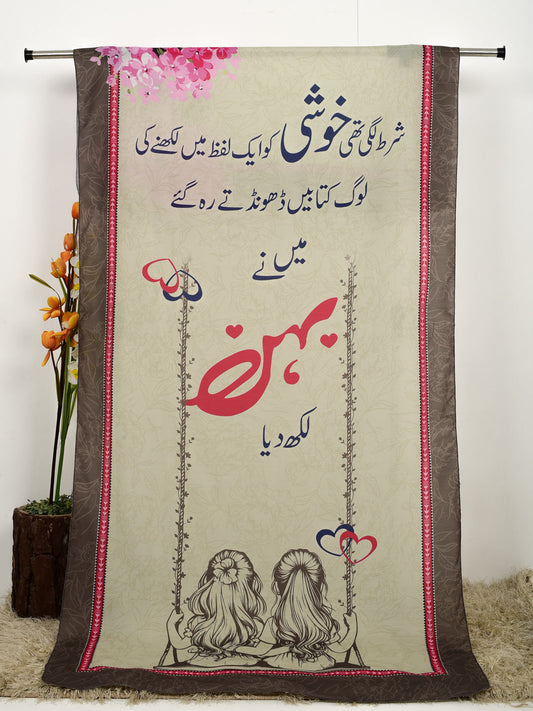 شرط لگی تھی خوشی کو ایک لفظ میں لکھنے کی
لوگ کتابیں ڈھونڈتے رہ گئے
میں نے
بہن
لکھ دیا